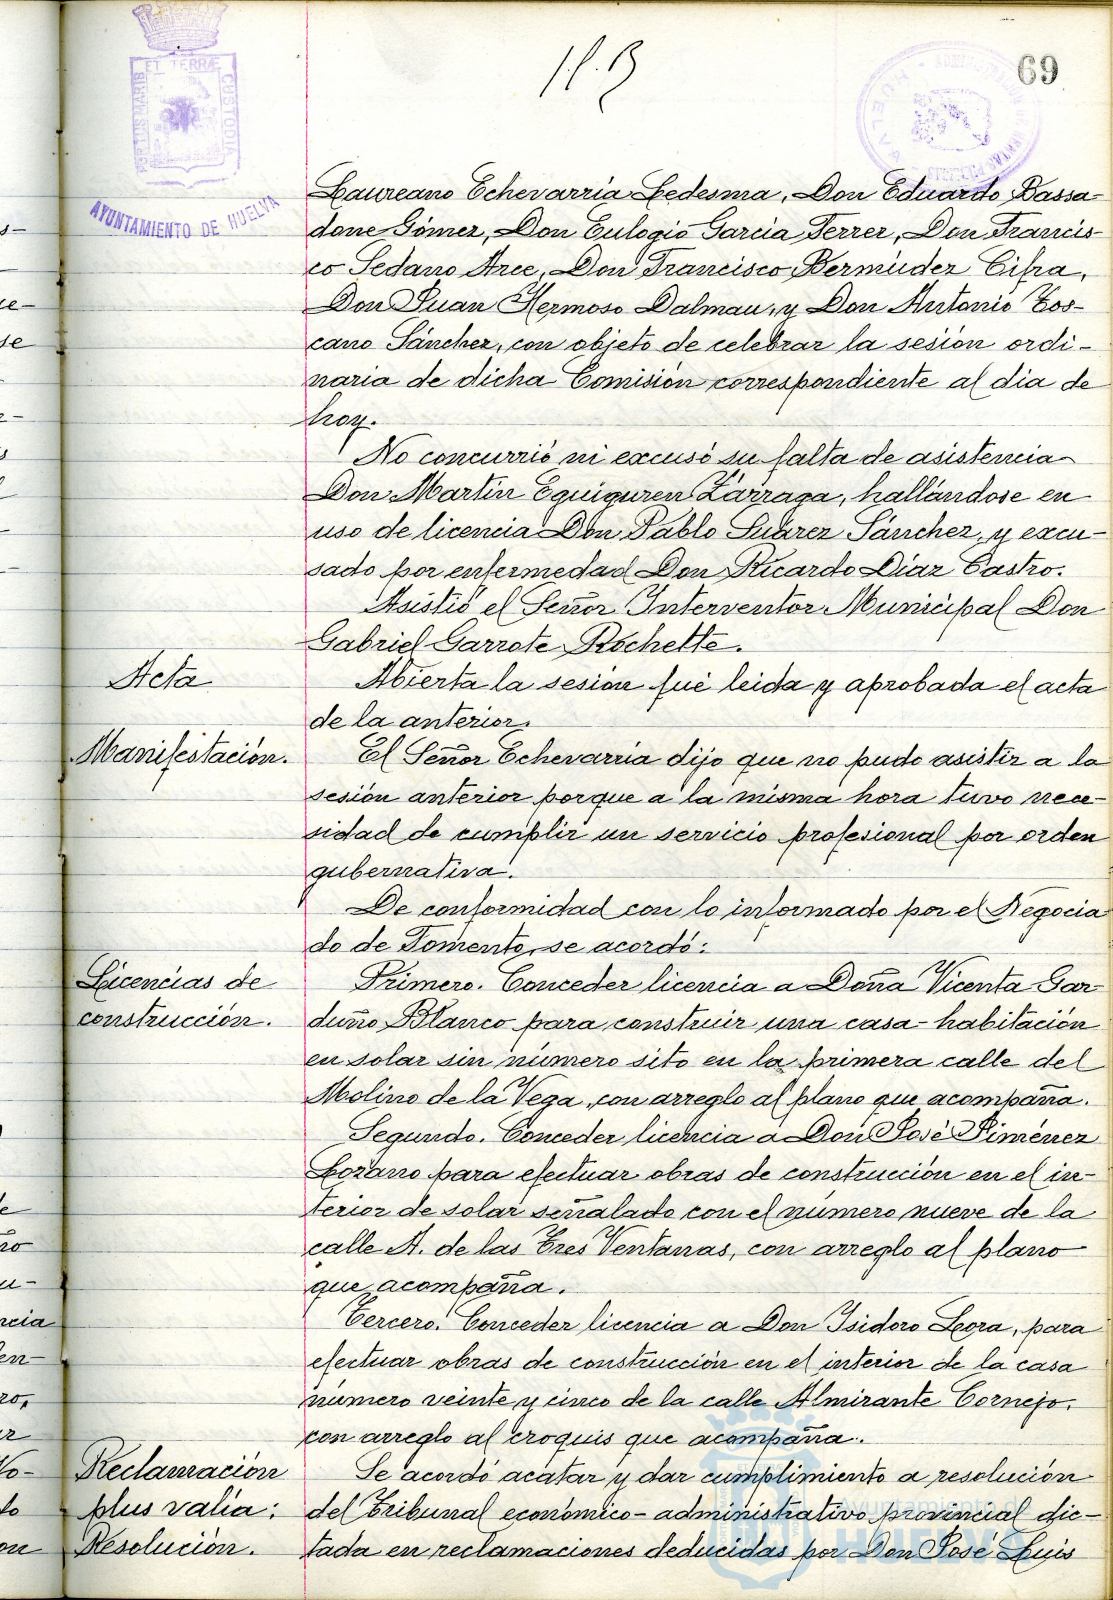 69
ET TERRÆ
PORTUS MARIS
CUSTODIA
AYUNTAMIENTO DE HUELVA
Laureano Echevarría Ledesma, Don Eduardo Bassa-
done Gómez, Don Eulogio García Ferrer, Don Francis-
co Sedano Arce, Don Francisco Bermúdez Cifra,
Don Juan Hermoso Dalmau, y Don Antonio Tos-
cano Sánchez, con objeto de celebrar la sesión ordi-
naria de dicha Comisión correspondiente al dia de
hoy.
No concurrió ni excusó su falta de asistencia
Don Martín Eguiguren Zárraga, hallándose en
uso de licencia Don Pablo Suárez Sánchez, y excu-
sado por enfermedad Don Ricardo Díaz Castro.
Asistió el Señor Interventor Municipal Don
Gabriel Garrote Rochette.
Acta
Abierta la sesión fué leida y aprobada el acta
de la anterior.
Manifestación.
El Señor Echevarría dijo que no pudo asistir a la
sesión anterior porque a la misma hora tuvo nece-
sidad de cumplir un servicio profesional por orden
gubernativa.
De conformidad con lo informado por el Negocia
do de Fomento, se acordó:
Licencias de
construcción.
Primero. Conceder licencia a Doña Vicenta Gar-
duño Blanco para construir una casa-habitación
en solar sin número sito en la primera calle del
Molino de la Vega, con arreglo al plano que acompaña.
Segundo. Conceder licencia a Don José Jiménez
Lozano para efectuar obras de construcción en el in-
terior de solar señalado con el número nueve de la
calle A. de las Tres Ventanas, con arreglo al plano
que acompaña.
Tercero. Conceder licencia a Don Isidoro Lora, para
efectuar obras de construcción en el interior de la casa
número veinte y cinco de la calle Almirante Cornejo,
con arreglo al croquis que acompaña.
Reclamación
plus valía:
Resolución.
Se acordó acatar y dar cumplimiento a resolución
del Tribunal económico-administrativo provincial dic-
tada en reclamaciones deducidas por Don José Luis
Ayuntamiento de
HUELVA